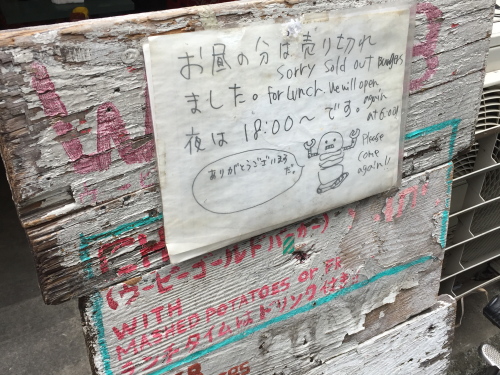 お昼の分は売り切れ
Sorry sold out burgers
ました。For Lunch. We will open
again
夜は 18:00～です。
at 6:00
ありがとうございました。
Please
come
again!!
(ラービーゴールドバーガー)
WITH
MASHED POTATOES OR FR
ランチタイムはドリンク付き